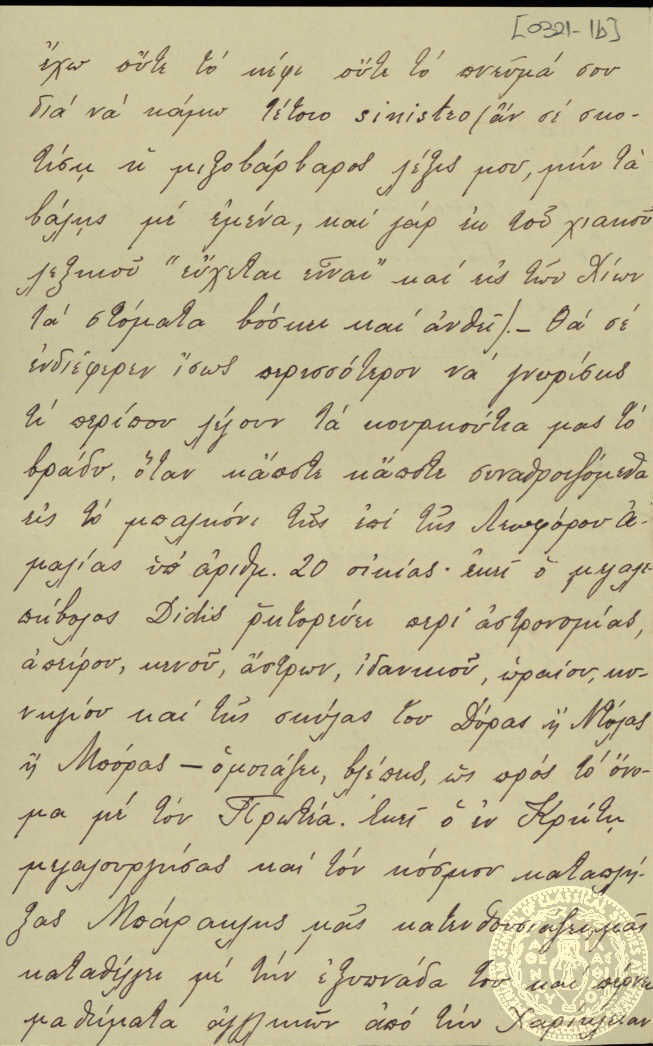 [0321-1b]
ἔχω οὔτε τό κέφι οὔτε τό πνεῦμά σου
διά νά κάμω τέτοιο sinistro (ἄν σέ σκο-
τίσῃ ἡ μιξοβάρβαρος λέξις μου, μήν τά
βάλῃς μέ ἐμένα, καί γάρ ἐκ τοῦ χιακοῦ
λεξικοῦ "εὔχεται εἶναι" καί εἰς τῶν Χίων
τά στόματα βόσκει καί ἀνθεῖ).- Θά σέ
ἐνδιέφερεν ἴσως περισσότερον νά γνωρίσῃς
τί περίπου λέγουν τά κουρκούτια μας τό
βράδυ, ὅταν κάποτε κάποτε συναθροιζόμεθα
εἰς τό μπαλκόνι τῆς ἐπί τῆς Λεωφόρου Ἀ-
μαλίας ὑπ' ἀριθμ. 20 οἰκίας· ἐκεῖ ὁ μεγαλε-
πήβολος Didis ῥητορεύει περί ἀστρονομίας,
ἀπείρου, κενοῦ, ἄστρων, ἰδανικοῦ, ὡραίου, κυ-
νηγίου καί τῆς σκύλας του Δόρας ἤ Ντόλας
ἤ Μπόρας — ὁμοιάζει, βλέπεις, ὡς πρός τό ὄνο-
μα μέ τόν Πρωτέα. Ἐκεῖ ὁ ἐν Κρήτῃ
μεγαλουργήσας καί τόν κόσμον καταπλή-
ξας Μπάρακλης μᾶς κατενθουσιάζει, μᾶς
καταθέλγει μέ τήν ἐξυπνάδα του καί παίρνει
μαθήματα ἀγγλικῶν ἀπό τήν Χαρίκλειαν